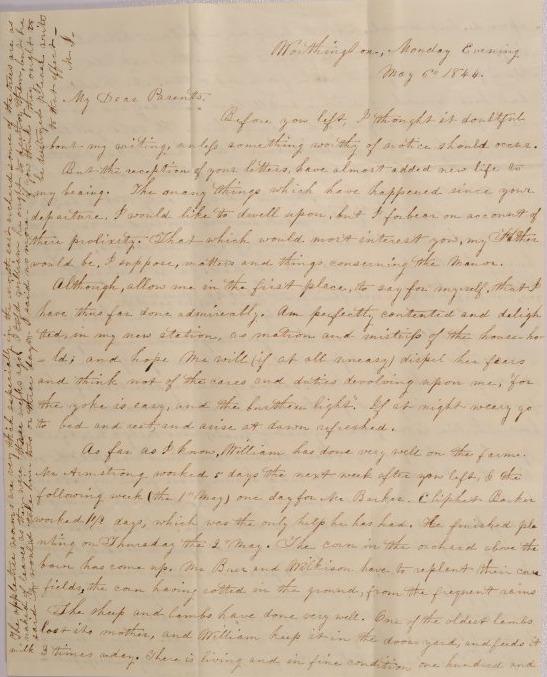 Worthington, Monday Evening
May 6th 1844.
My Dear Parents,
Before you left, I thought it doubtful
about my writing, unless something worthy of notice should occur.
But the reception of your letters, have almost added new life to
my being. The many things which have happened since your
departure, I would like to dwell upon, but I forbear on account of
their prolixity. That which would most interest you, my Father
would be, I suppose, matters and things, concerning the Manor.
Although, allow me in the first place, to say for myself, that I
have thus far done admirably. Am perfectly contented and deligh
ted, in my new station, as matron and mistress of the househo
ld; and hope Ma will (if at all uneasy) dispel her fears
and think not of the cares and duties devolving upon me, "for
the yoke is easy, and the burthen light". If at night weary go
to bed and rest, and arise at dawn refreshed.
As far as I know, William has done very well on the farm.
Mr Armstrong worked 5 days the next week after you left, & the
following week (the 1st May) one day for Mr Barker. Barker
worked 1 1/2 days, which was the only help he has had. He finished pla
nting on Thursday the 2d May. The corn in the orchard above the
barn has come up. Mr and Wilkison have to replant their corn
fields, the corn having rotted in the ground, from the frequent rains
The sheep and lambs have done very well. One of the oldest lambs
lost its mother, and William keeps it in the door yard, and feeds it
milk 3 times a day. There is living and in fine condition one hundred and
The apple trees are very thick especially in the orchard some of the trees are as